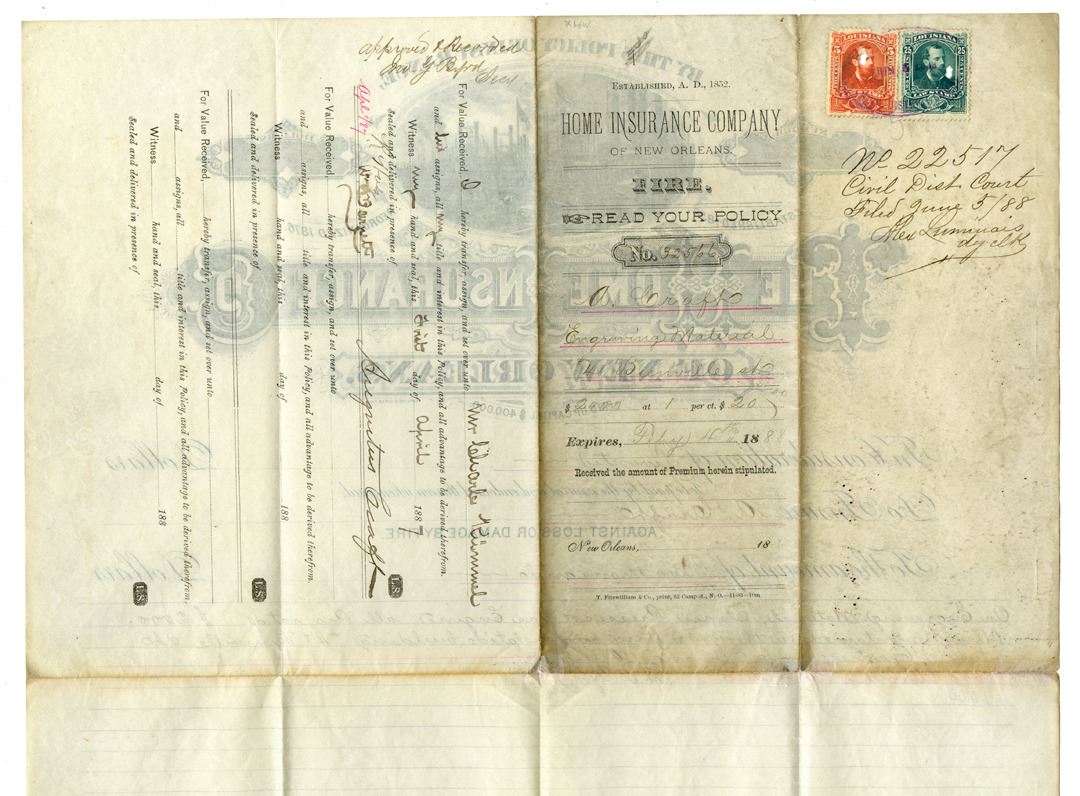 Approved & Recorded
For Value Received, I hereby transfer, assign, and set over unto Mr Charles Kimmel
and his assigns, all my title and interest in this Policy, and all advantage to be derived therefrom.
Witness my hand and seal, this First day of April 1887
Sealed and delivered in presence of
Augustus Craft
L.S
For Value Received, hereby transfer, assign, and set over unto
and assigns, all title and interest in this Policy, and all advantage to be derived therefrom.
Witness hand and seal, this day of 188
Sealed and delivered in presence of
L.S
For Value Received, hereby transfer, assign, and set over unto
and assigns, all title and interest in this Policy, and all advantage to be derived therefrom.
Witness hand and seal, this day of 188
Sealed and delivered in presence of
L.S
ESTABLISHED, A. D., 1832.
HOME INSURANCE COMPANY
OF NEW ORLEANS.
FIRE.
READ YOUR POLICY
No. 32566
A. Craft
Engraving Material
$ 2000 at 1 per ct. $ 20
Expires, Feby 4th 1888
Received the amount of Premium herein stipulated.
New Orleans, 18
T. Fitzwilliam & Co., print, 62 Camp st., N. O.
LOUISIANA
5 5
LOUISIANA
25 25
No 22517
Civil Dist Court
Filed June 5/88
Alex Luminais
dy clk